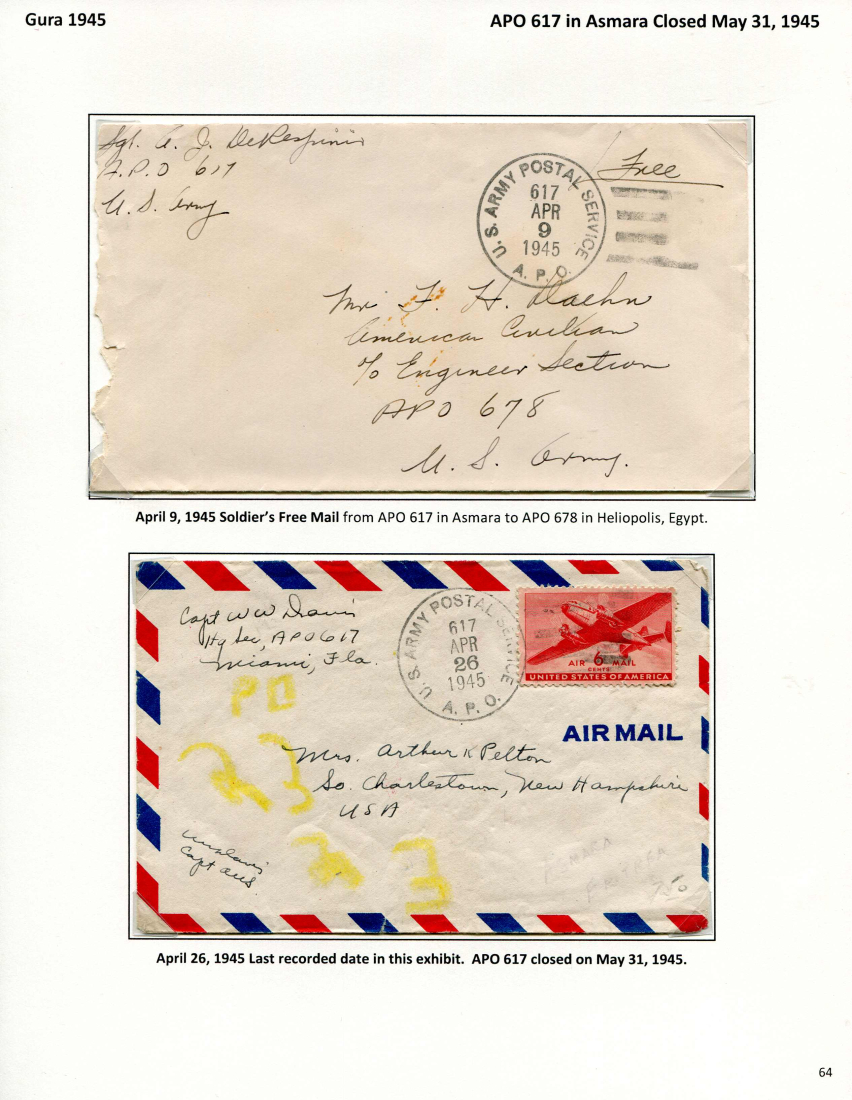 Gura 1945
APO 617 in Asmara Closed May 31, 1945
Sgt. A. J. DeRespinis
A.P.O 617
U. S. Army
U. S. ARMY POSTAL SERVICE
617
APR
9
1945
A. P. O.
Free
Mr F. H. Daehn
American Civilian
c/o Engineer Section
APO 678
U. S. Army.
April 9, 1945 Soldier's Free Mail from APO 617 in Asmara to APO 678 in Heliopolis, Egypt.
Capt W W Davis
Hq Sec, APO 617
Miami, Fla.
U. S. ARMY POSTAL SERVICE
617
APR
26
1945
A. P. O.
AIR 6 MAIL
CENTS
UNITED STATES OF AMERICA
AIR MAIL
Mrs. Arthur K Pelton
So. Charlestown, New Hampshire
USA
Capt AUS.
ASMARA
ERITREA
April 26, 1945 Last recorded date in this exhibit. APO 617 closed on May 31, 1945.
64